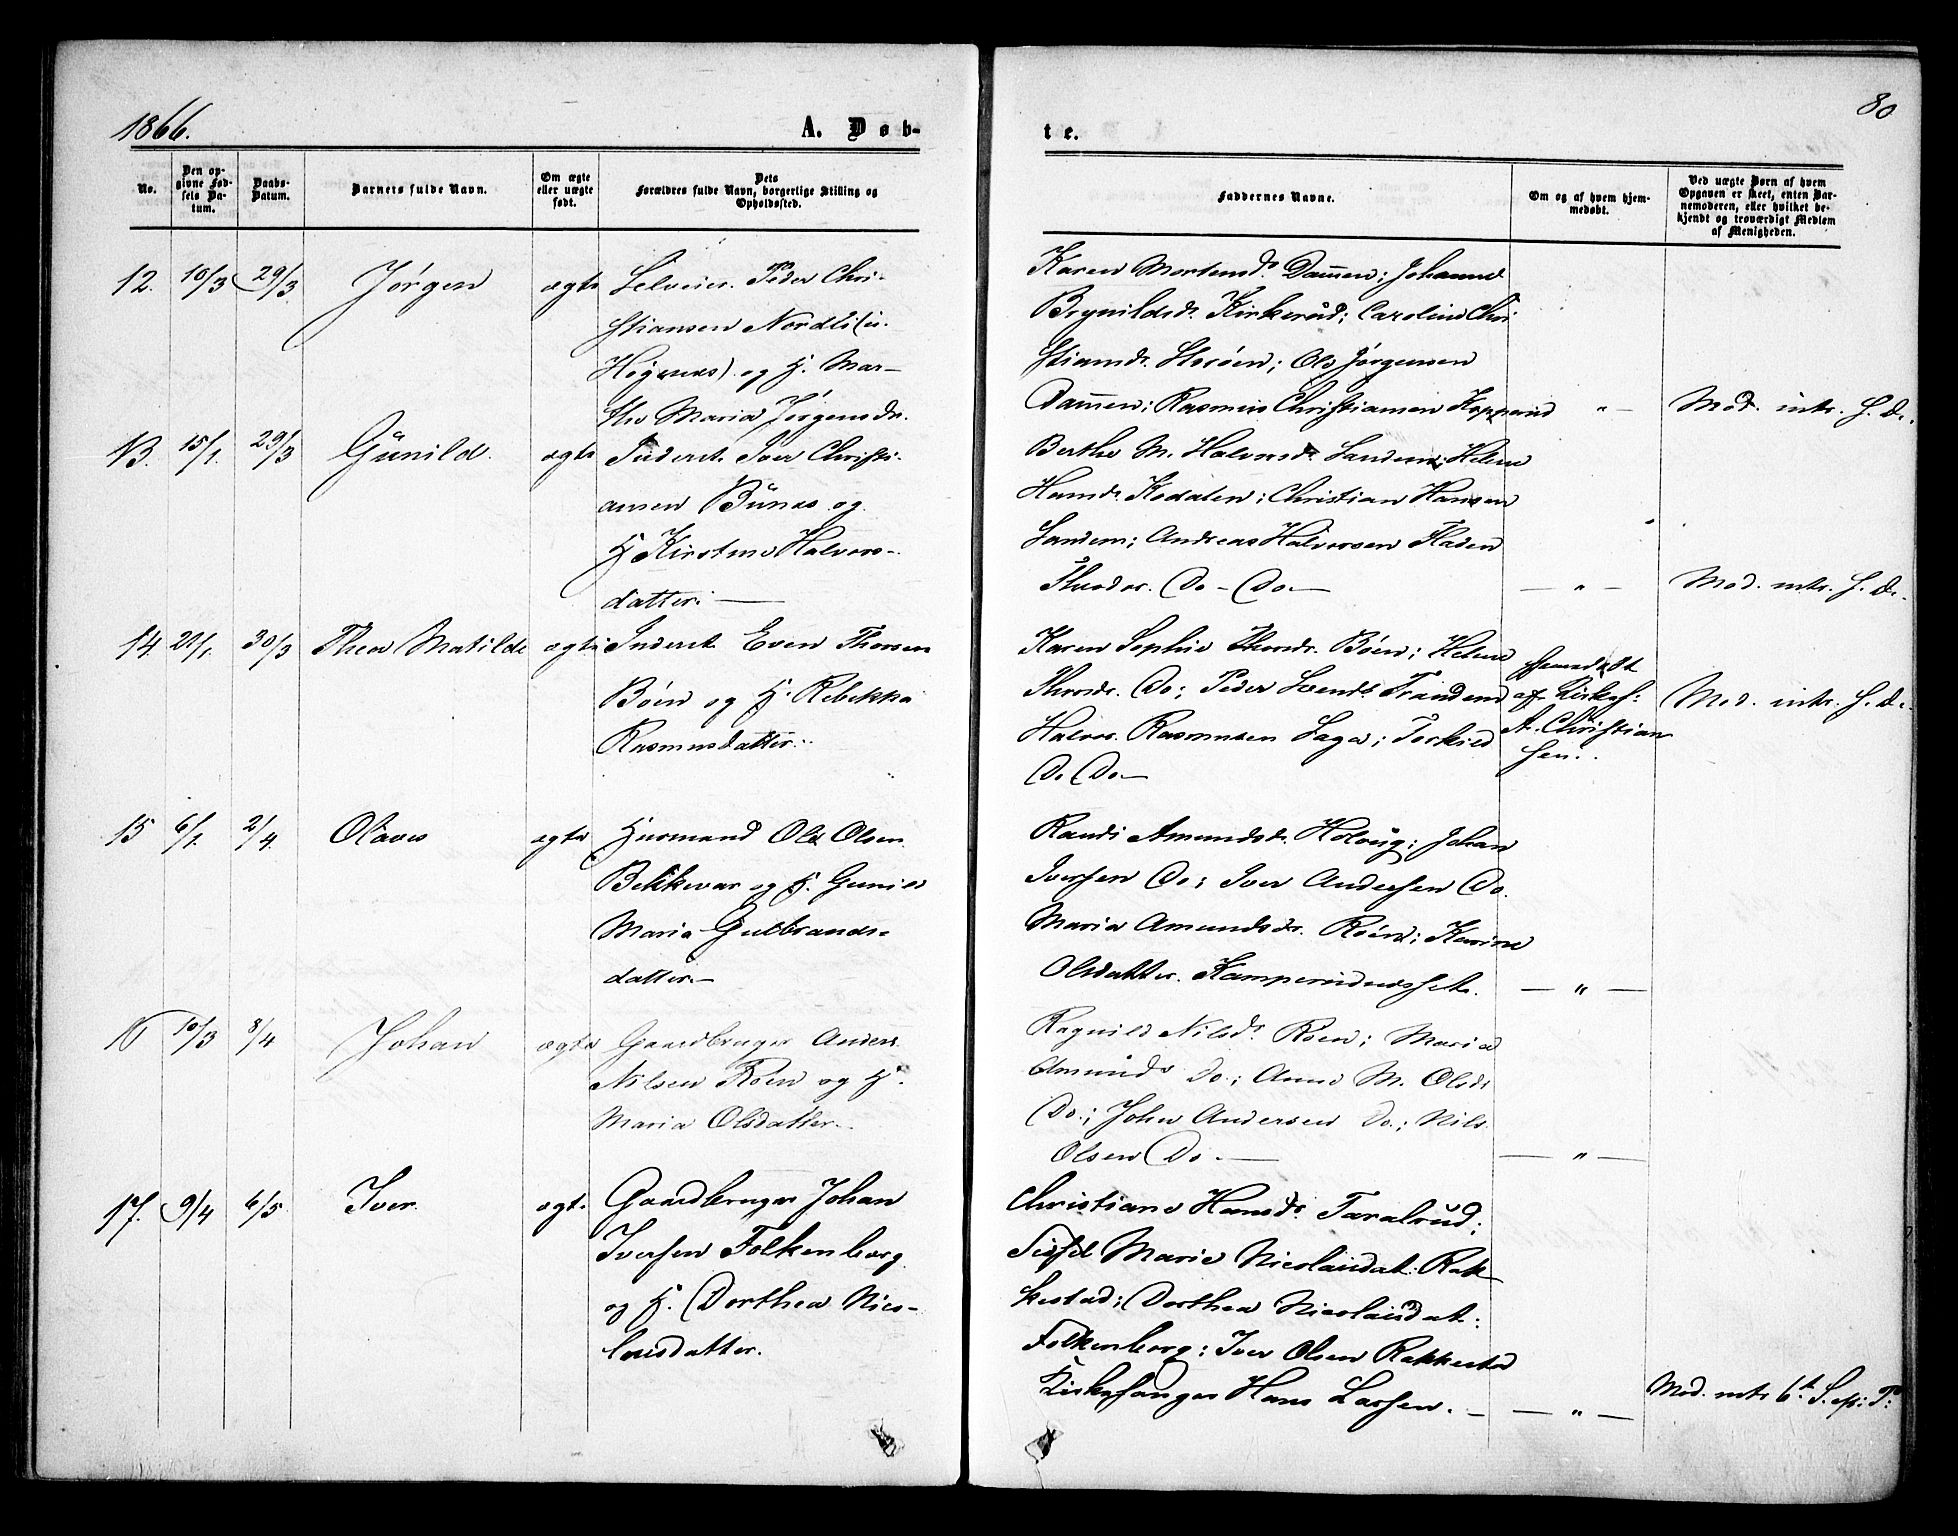 1866.
A. Døb-
te.
80
No.
Den op-
givne Fød-
sels Da-
tum.
Daabs-
Datum.
Barnets fulde Navn.
Om ægte
eller uægte
født.
Dets
Forældres fulde Navn, borgerlige Stilling og
Opholdssted.
Faddernes Navne.
Om og af hvem hjem-
medøbt.
Ved uægte Børn af hvem
Opgaven er skeet, enten Bar-
nemoderen, eller hvilket be-
kjendt og troværdigt Medlem
af Menigheden.
12. 10/3 29/3 Jørgen ægte Selveier Peder Chri-
stiansen Nordli (i
og H. Mar-
the Maria Jørgensdr.
Karen Mortensdr. Damen; Johanne
Brynildsdr. Kirkerud; Caroline Chri
stiansdr. Ole Jørgensen
Damen; Rasmus Christiansen Kopperud
" Mod. intr. s. D.
13. 15/1. 29/3 Gunild. ægte Inderst Iver Christi-
ansen Bunæs og
H Kirstine Halvors-
datter.
Berthe M. Halvorsdr. Sandem; Helene
Hansdr. Kodalen; Christian Hansen
Sandem; Andreas Halvorsen Fladen
Theodor. Do - Do
— " — Mod. intr. s. D.
14. 21/1. 30/3 Thea Matilde ægte Inderst Even Thorsen
Böen og H. Rebekka
Rasmusdatter.
Karen Sophie Thorsdr. Böen; Helene
Thorsdr. Do; Peder Svends. Trandem
Halvor. Rasmussen Saga; Torkild
Do Do
Hjemdøbt
af Kirkes:
A. Christian
sen.
Mod. intr. s. D.
15 6/1. 2/4. Olaves ægte Husmand Ole Olsen
Bekkevar og H. Gunild
Maria Gulbrands-
datter.
Randi Amundsdr. Holvug; Johan
Iversen Do; Iver Andersen Do.
Maria Amundsdr. Röen; Karine
Olsdatter.
— " —
16 10/3 8/4 Johan ægte Gaardbruger Anders
Nilsen Röen og H.
Maria Olsdatter.
Ragnild Nilsdr. Röen; Maria
Amundsdr Do.; Anne M. Olsdr
Do.; John Andersen Do.; Nils
Olsen Do.
— " —
17. 9/4 6/5 Iver. ægt. Gaardbruger Johan
Iversen Folkenborg
og H. Dorthea Nico-
lausdatter.
Christiane Hansdr. Taralrud;
Marie Nicolausdat. Rak
kestad; Dorthea Nicolausdat:
Folkenborg; Iver Olsen Rakkestad
Kirkesanger Hans Larsen.
— " — Mod. intr 6t S. ep: T: